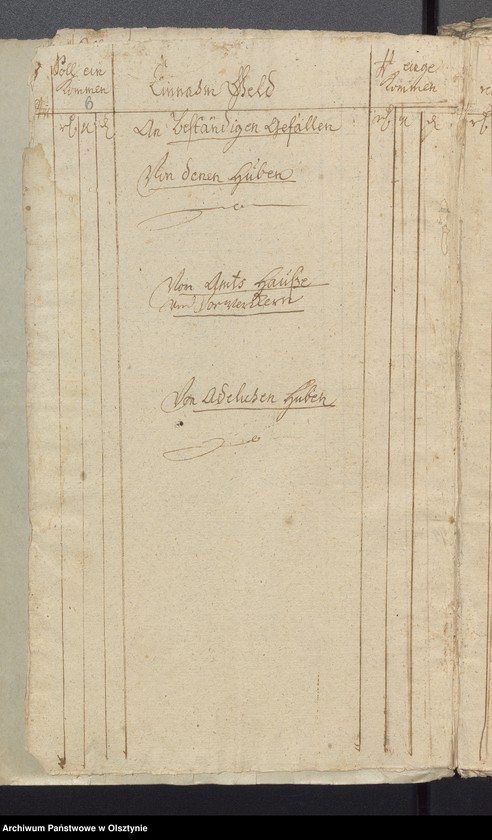 Soll ein
Kommen
6
Einnahm Geld
Ist einge
Kommen
An Beständigen Gefällen
Von denen Huben
Vom Amts Hauße
und Vorwerckern
Von Adelichen Huben
Archiwum Państwowe w Olsztynie